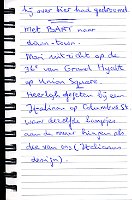 hij over hier huis gedroomd.
Met BART naar
down-town.
Van uitzicht op de
36e van Grand Hyatt
op Union Square.
Heerlijk gegeten bij een
Italiaan op Columbus St
waar dezelfde lampjes
aan de muur hingen als
die van ons (Italiaans
design).